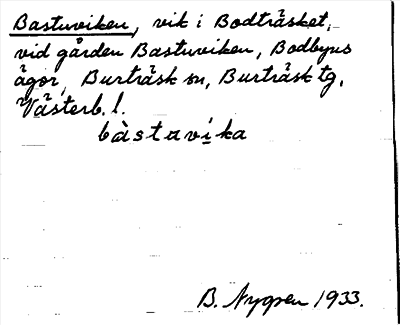 Bastuviken, vik i Bodträsket,
vid gården Bastuviken, Bodbyns
ägor, Burträsk sn, Burträsk tg,
Västerb. l.
bàstavika
B. Nygren 1933.